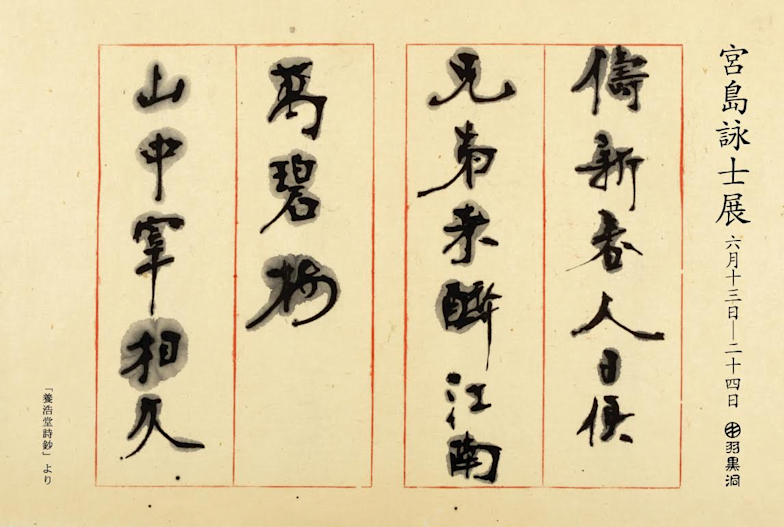 宮島詠士展 六月十三日―二十四日 羽黒洞
儔新春人日便
兄弟来江南
碧
山中宰相久
「養浩堂詩鈔」より